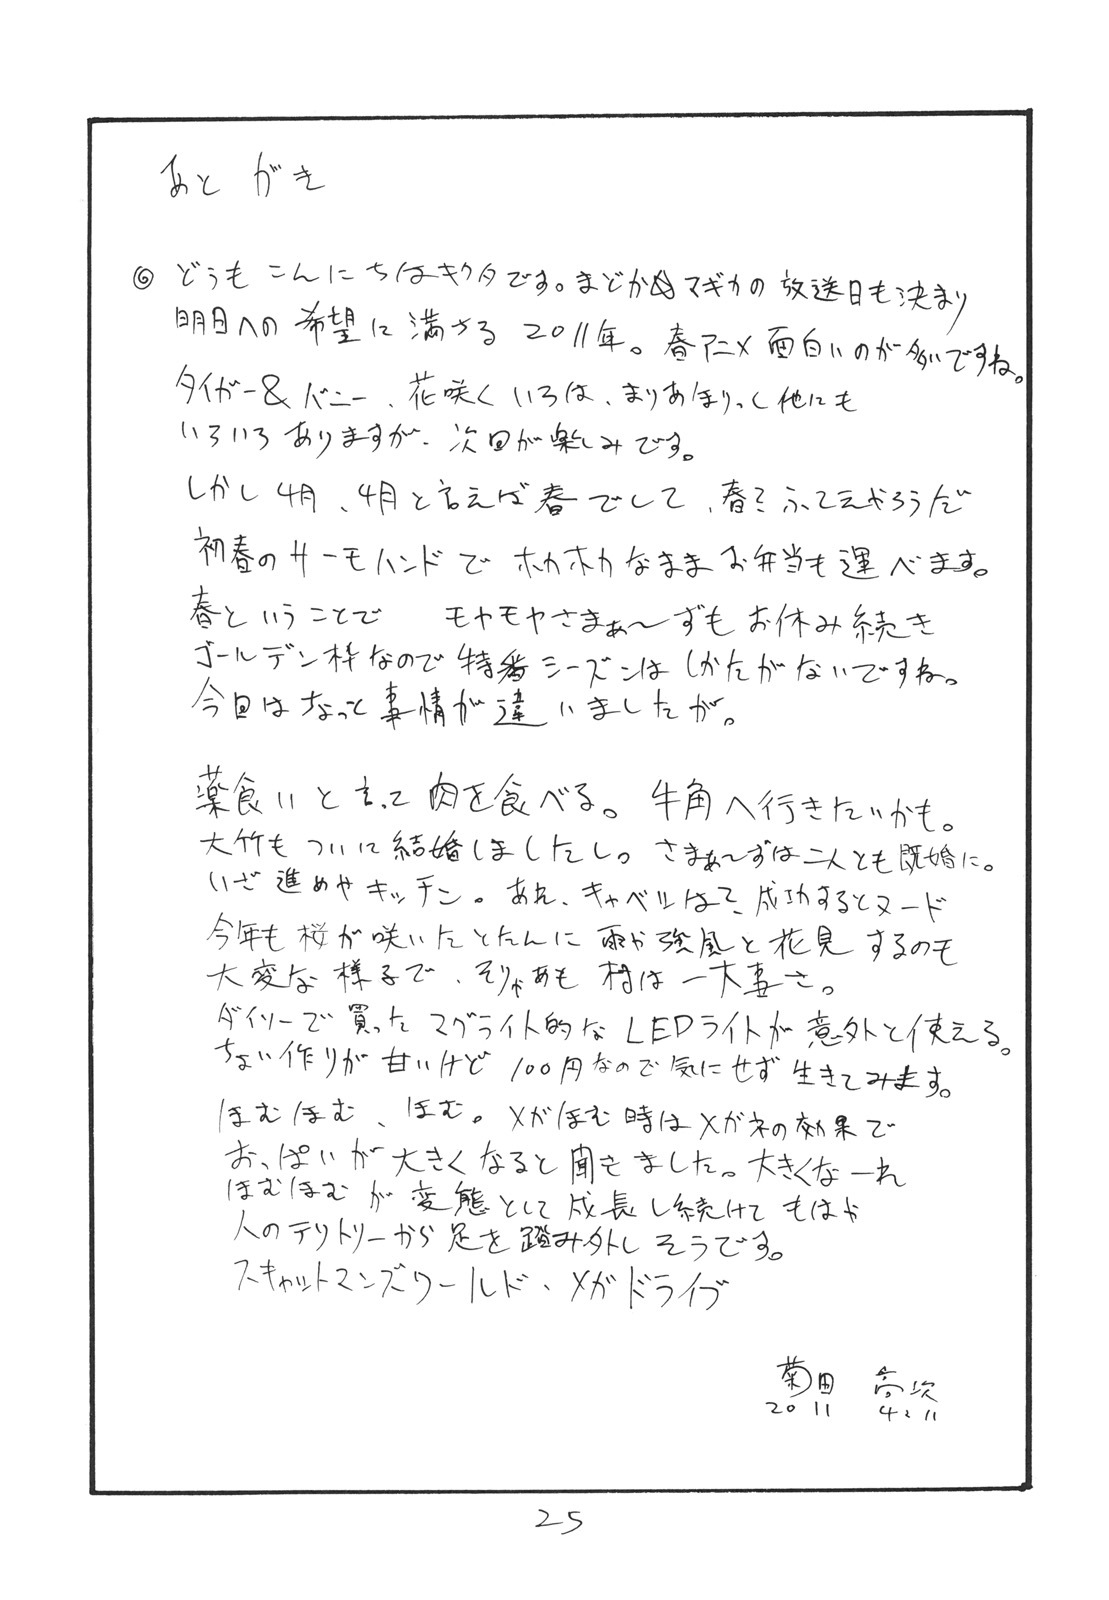 あとがき
◎ どうもこんにちはキクタです。まどか☆マギカの放送日も決まり
明日への希望に満ちる 2011年。春アニメ面白いのが多いですね。
タイガー&バニー、花咲くいろは、まりあほりっく他にも
いろいろありますが、次回が楽しみです。
しかし4月、4月と言えば春でして、春
初春のサーモハンドでホカホカなままお弁当も運べます。
春ということで モヤモヤさまぁ〜ずもお休み続き
ゴールデン枠なので特番シーズンはしかたがないですね。
今回はちょっと事情が違いましたが。
薬食いと言って肉を食べる。牛角へ行きたいかも。
大竹もついに結婚しましたし。さまぁ〜ずは二人とも既婚に。
いざ進めやキッチン。あれ、キャベツはて、成功するとヌード
今年も桜が咲いたとたんに雨や強風と花見するのも
大変な様子で、そりゃあも村は一大事さ。
ダイソーで買ったマグライト的なLEDライトが意外と使える。
ちょい作りが甘いけど100円なので気にせず生きてみます。
ほむほむ、ほむ。メガほむ時はメガネの効果で
おっぱいが大きくなると聞きました。大きくなーれ
ほむほむが変態として成長し続けてもはや
人のテリトリーから足を踏み外しそうです。
スキャットマンズワールド、メガドライブ
菊田 高次
2011 4.11
25